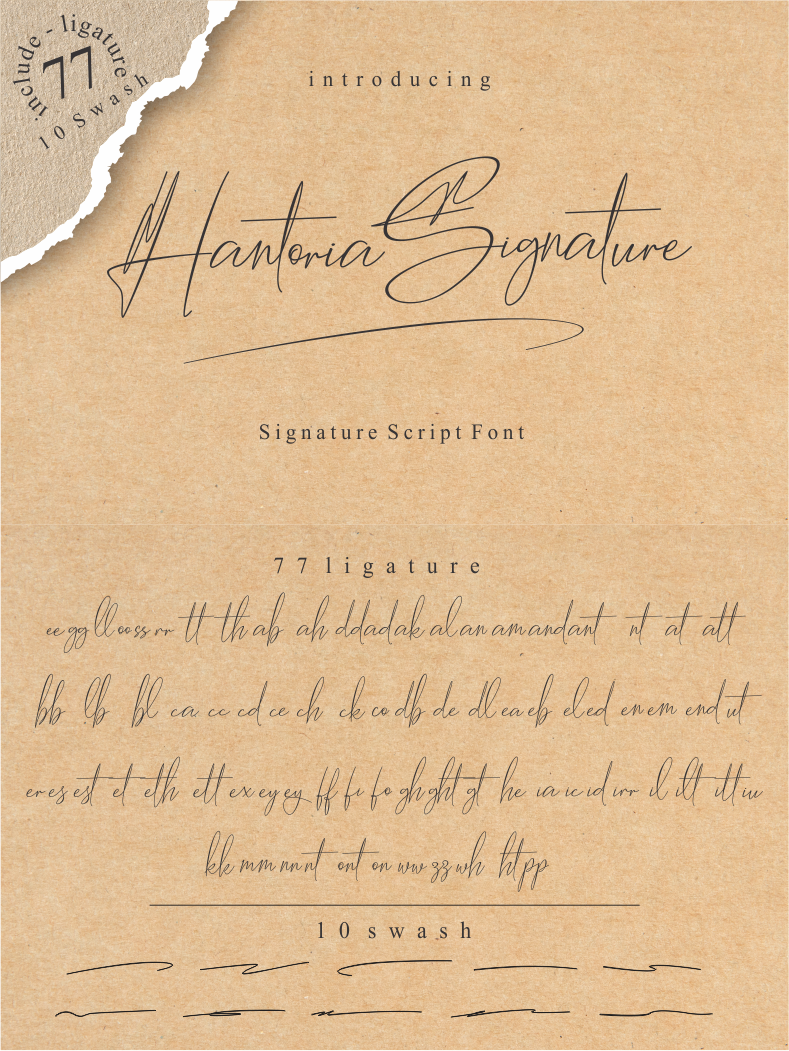 include - ligature
77
10 Swash
introducing
Hantoria Signature
Signature Script Font
77 ligature
ee gg ll oo ss rr tt th ab ah dd ad ak al an am and ant nt at att
bb lb bl ca cc cd ce ch ck co db de dl ea eb el ed en em end ut
er es est et eth ett ex ey ey ff fi fo gh ght gt he ia ic id irr il ilt itt iu
kk mm nn nt ont on ww zz wh ht pp
10 swash